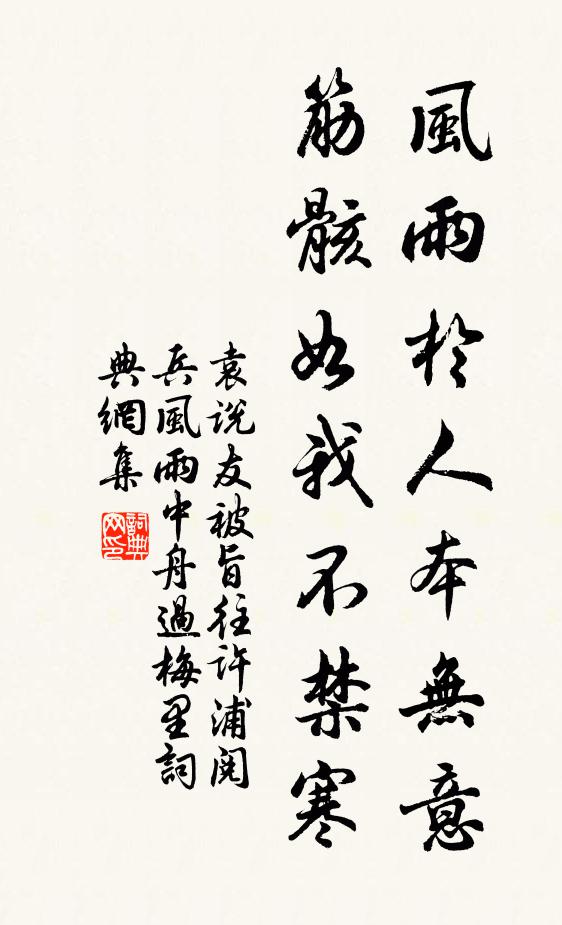 風雨於人本無意
筋骸如我不禁寒
袁说友被旨往许浦阅
兵風雨中舟過梅里詞
典網集
詞典网印